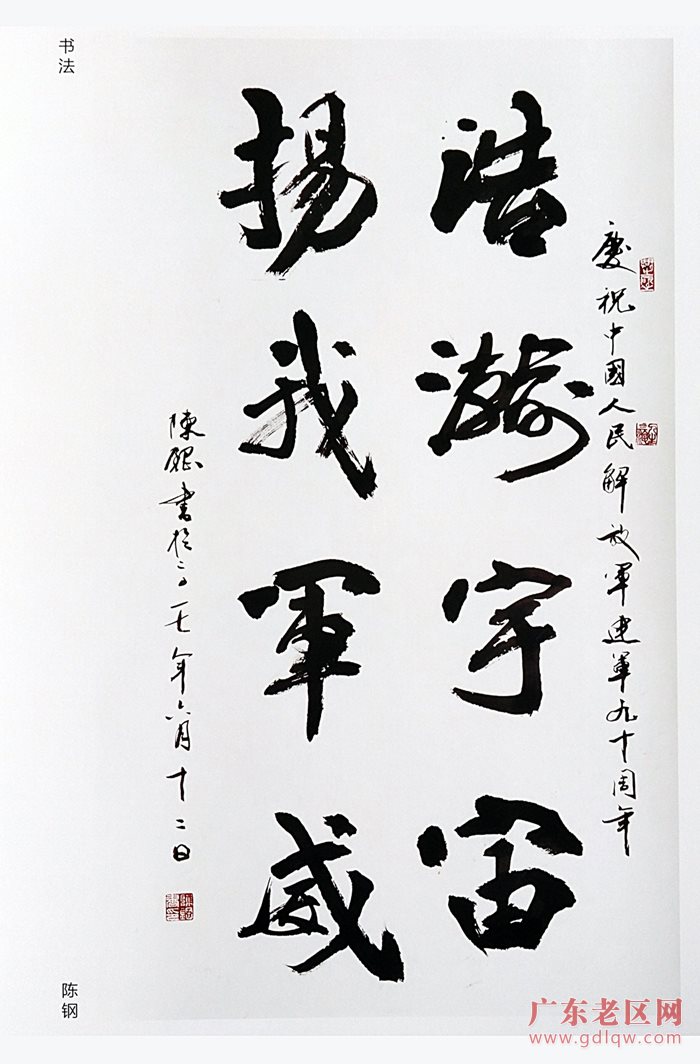 慶祝中國人民解放軍建軍九十周年
浩瀚宇宙
揚我軍威
陳鋼書於二〇一七年六月十二日
书法
陈钢
广东老区网
www.gdlqw.com